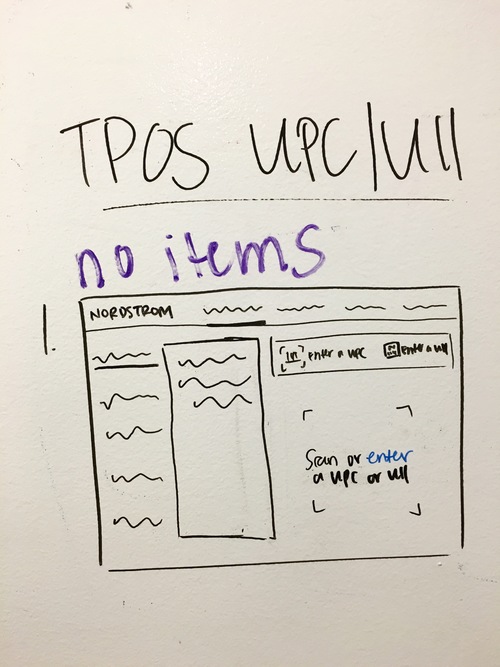 TPOS UPC/UII
no items
1.
NORDSTROM
enter a UPC
Enter a UII
Scan or enter
a UPC or UII